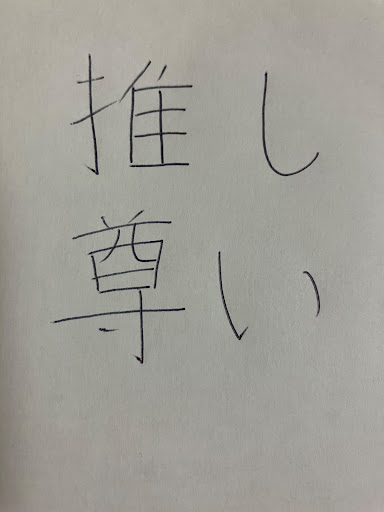 推し
尊い